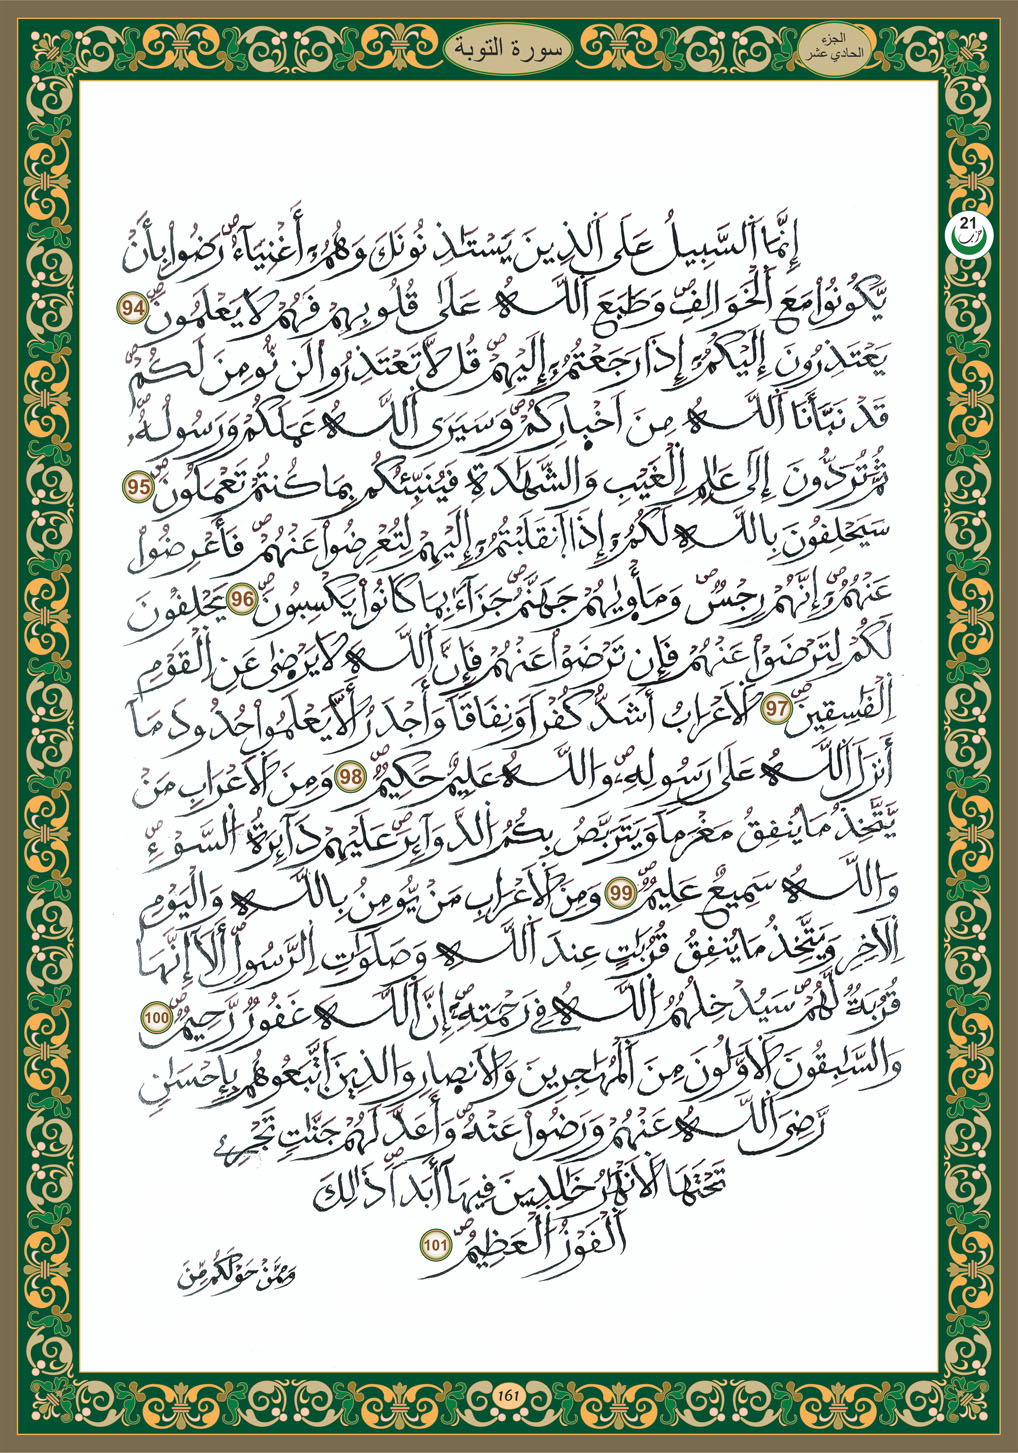 سورة التوبة
الجزء
الحادي عشر
21
إِنَّمَا اَلسَّبِيلُ عَلَى اَلذِينَ يَسْتَٰذِنُونَكَ وَهُمُۥٓ أَغْنِيَآءُ رَضُواْ بِأَنْ
يَّكُونُواْ مَعَ اَلْخَوَالِفِ وَطَبَعَ اَللَّهُ عَلَىٰ قُلُوبِهِمْ فَهُمْ لَا يَعْلَمُونَ 94
يَعْتَذِرُونَ إِلَيْكُمُۥٓ إِذَا رَجَعْتُمُۥٓ إِلَيْهِمْ قُل لَّا تَعْتَذِرُواْ لَن نُّومِنَ لَكُمْ
قَدْ نَبَّأَنَا اَللَّهُ مِنَ اَخْبَارِكُمْ وَسَيَرَى اَللَّهُ عَمَلَكُمْ وَرَسُولُهُۥ
ثُمَّ تُرَدُّونَ إِلَىٰ عَٰلِمِ اِلْغَيْبِ وَالشَّهَٰدَةِ فَيُنَبِّئُكُم بِمَا كُنتُمْ تَعْمَلُونَ 95
سَيَحْلِفُونَ بِاللَّهِ لَكُمُۥٓ إِذَا اَنقَلَبْتُمُۥٓ إِلَيْهِمْ لِتُعْرِضُواْ عَنْهُمْ فَأَعْرِضُواْ
عَنْهُمُۥٓ إِنَّهُمْ رِجْسٌ وَمَأْوٜيٰهُمْ جَهَنَّمُ جَزَآءَۢ بِمَا كَانُواْ يَكْسِبُونَ 96 يَحْلِفُونَ
لَكُمْ لِتَرْضَوْاْ عَنْهُمْ فَإِن تَرْضَوْاْ عَنْهُمْ فَإِنَّ اَللَّهَ لَا يَرْضَىٰ عَنِ اِلْقَوْمِ
اِلْفَٰسِقِينَ 97 اَلَاعْرَابُ أَشَدُّ كُفْراً وَنِفَاقاً وَأَجْدَرُ أَلَّا يَعْلَمُواْ حُدُودَ مَآ
أَنزَلَ اَللَّهُ عَلَىٰ رَسُولِهِۦ وَاللَّهُ عَلِيمٌ حَكِيمٌ 98 وَمِنَ اَلَاعْرَابِ مَنْ
يَّتَّخِذُ مَا يُنفِقُ مَغْرَماً وَيَتَرَبَّصُ بِكُمُ اُلدَّوَآئِرَ عَلَيْهِمْ دَآئِرَةُ اُلسَّوْءِ
وَاللَّهُ سَمِيعٌ عَلِيمٌ 99 وَمِنَ اَلَاعْرَابِ مَنْ يُّومِنُ بِاللَّهِ وَالْيَوْمِ
اِلَاخِرِ وَيَتَّخِذُ مَا يُنفِقُ قُرُبَٰتٍ عِندَ اَللَّهِ وَصَلَوَٰتِ اِلرَّسُولِ أَلَآ إِنَّهَا
قُرُبَةٌ لَّهُمْ سَيُدْخِلُهُمُ اُللَّهُ فِي رَحْمَتِهِۦٓ إِنَّ اَللَّهَ غَفُورٌ رَّحِيمٌ 100
وَالسَّٰبِقُونَ اَلَاوَّلُونَ مِنَ اَلْمُهَٰجِرِينَ وَالَانصارِ وَالذِينَ اَتَّبَعُوهُم بِإِحْسَٰنٍ
رَّضِيَ اَللَّهُ عَنْهُمْ وَرَضُواْ عَنْهُ وَأَعَدَّ لَهُمْ جَنَّٰتٍ تَجْرِے
تَحْتَهَا اَلَانْهَٰرُ خَٰلِدِينَ فِيهَآ أَبَداً ذَٰلِكَ
اَلْفَوْزُ اُلْعَظِيمُ 101
وَمِمَّنْ حَوْلَكُم مِّنَ
161